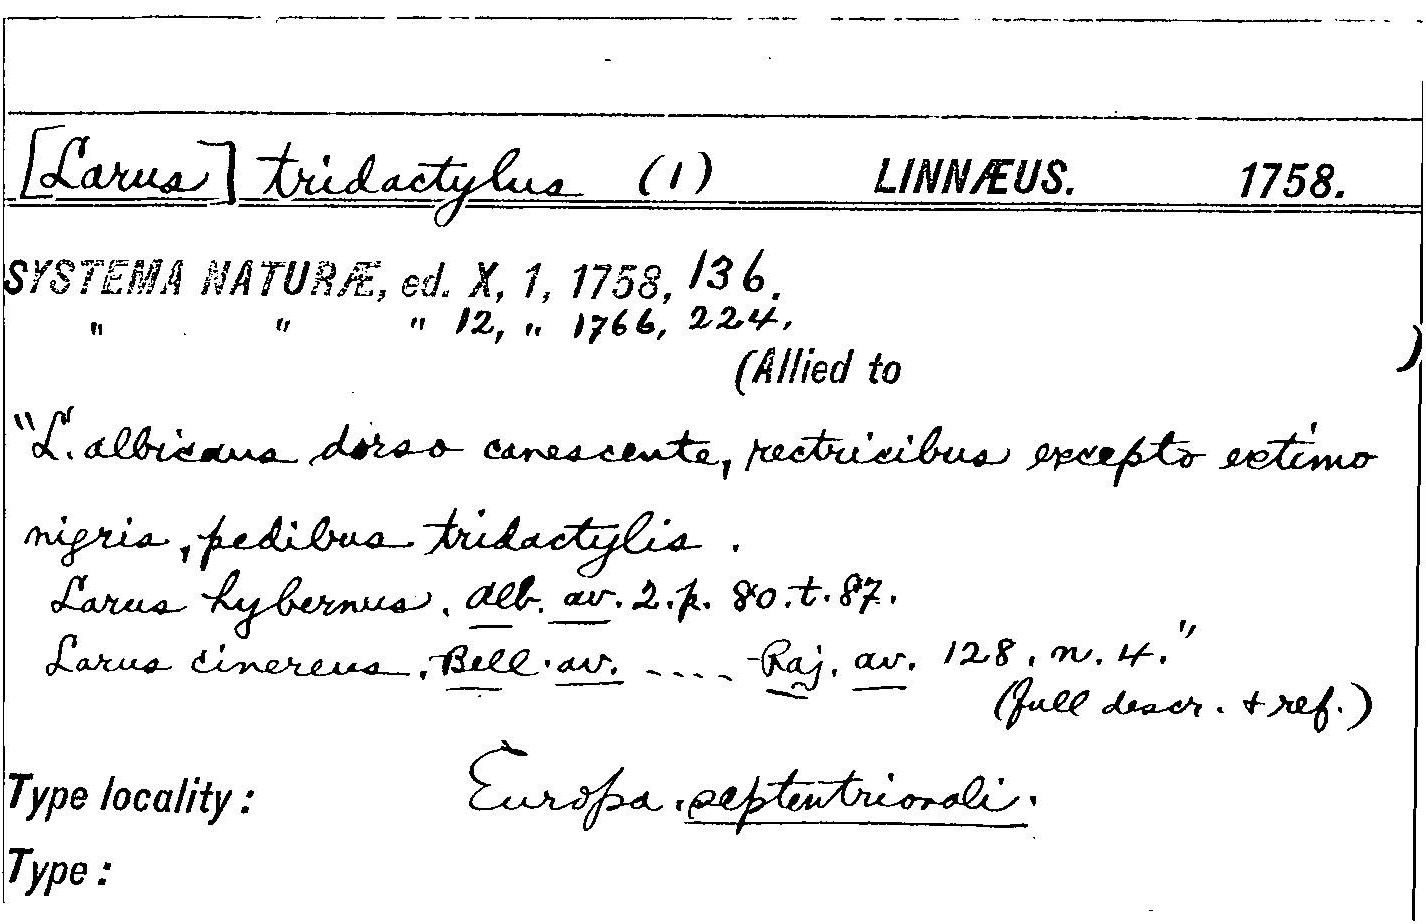 [Larus] tridactylus (1) LINNÆUS. 1758.
SYSTEMA NATURÆ, ed. X, 1, 1758, 136.
" " " 12, " 1766, 224.
(Allied to )
"L. albicans dorso canescente, rectricibus excepto extimo
nigris, pedibus tridactylis.
Larus hybernus. Alb. av. 2. p. 80. t. 87.
Larus cinereus. Bell. av. .... Raj. av. 128. n. 4."
(full descr. + ref.)
Type locality: Europa septentrionali.
Type: